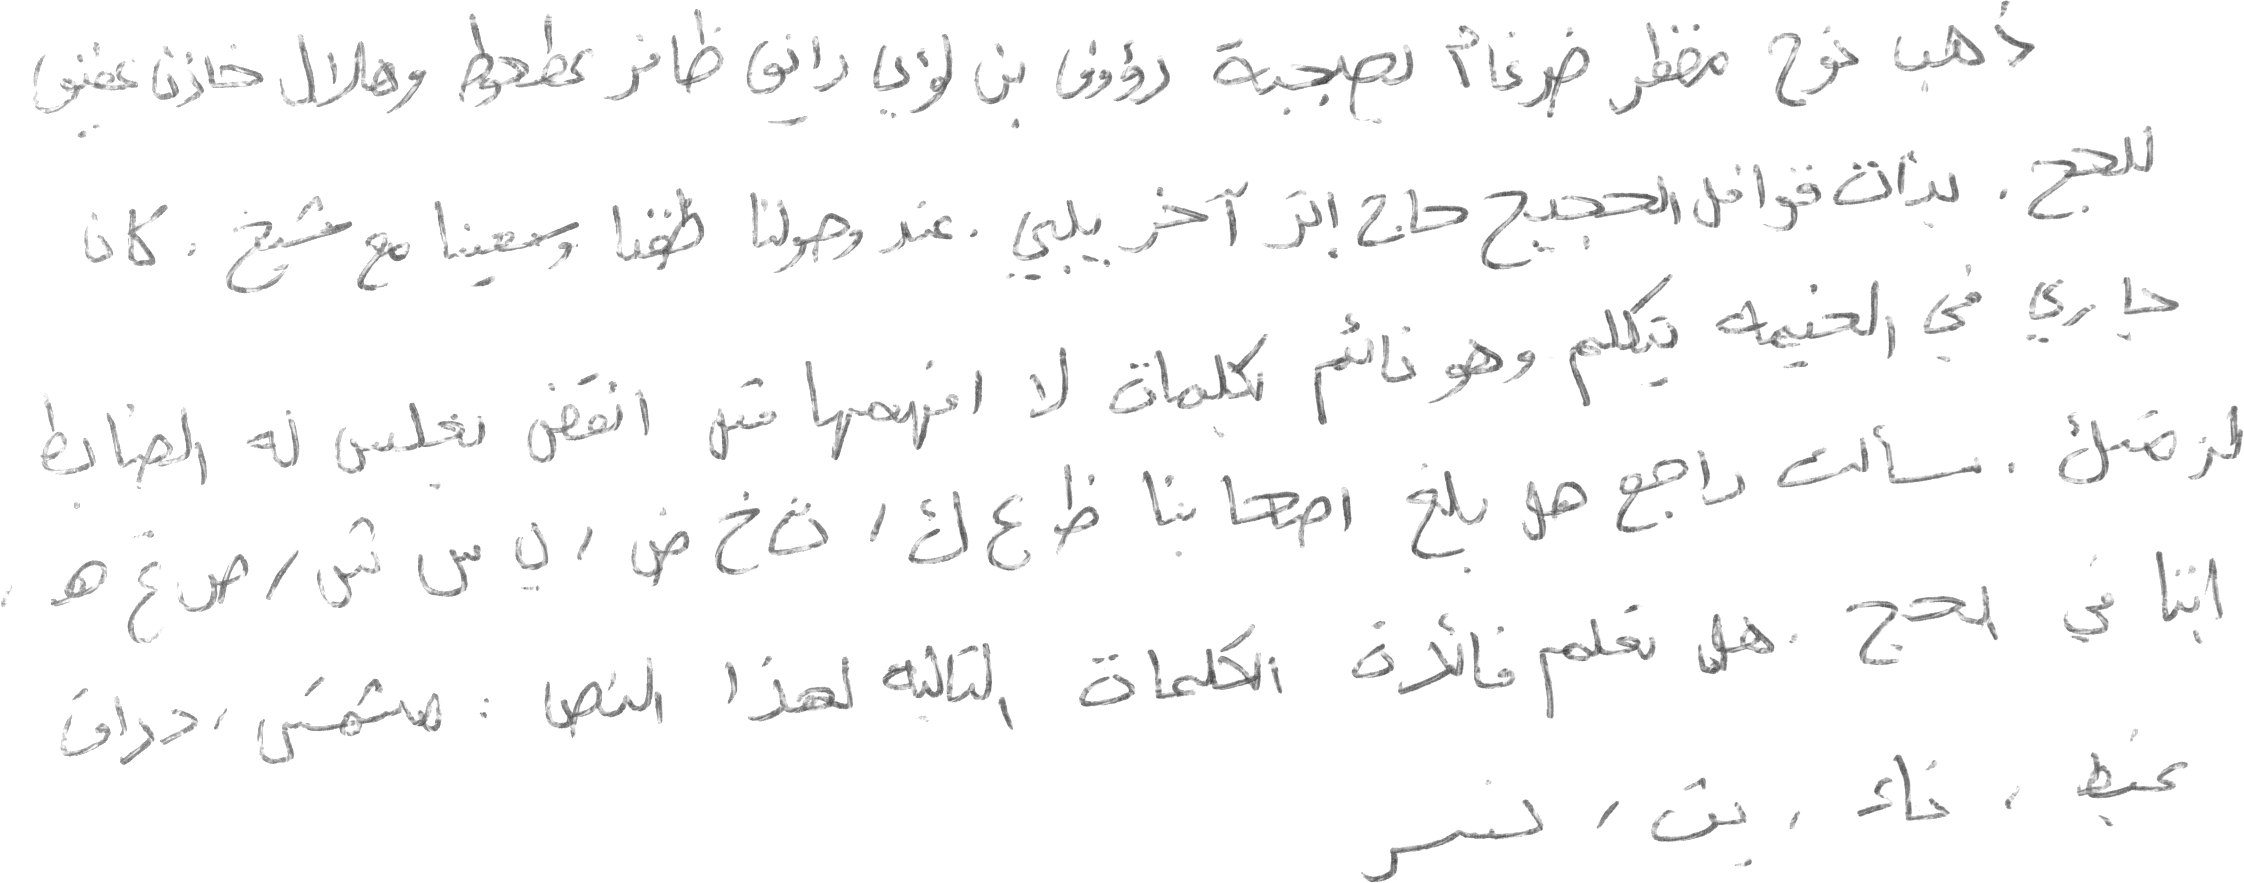 ذهب نوح مظفر ضرغام بصحبة رؤوف بن لؤي رائق ظافر عطعوط وهلال خازن عفيفي
للحج . بدأت قوافل الحجيج حاج إثر آخر يلبي . عند وصولنا طفنا وسعينا مع شيخ . كان
جاري في الخيمه يتكلم وهو نائم بكلمات لا افهمها مثل انقض تغلبس نه الضابط
لزضئك . سألت راجح هل بلغ اصحابنا ظ ع ك ، ث خ ض ، ي س ش ، ص غ ه ،
اننا في الحج . هل تعلم فائدة الكلمات التاليه لهذا النص : مشمش ، دراق
غيظ ، ناء ، بث ، نسر